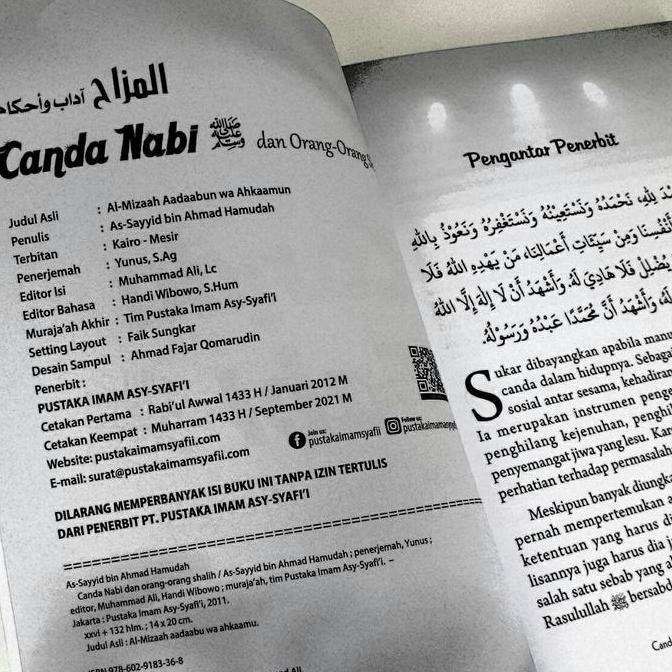 المزاح آداب وأحكام
Canda Nabi ﷺ dan Orang-Orang
Judul Asli : Al-Mizaah Aadaabun wa Ahkaamun
Penulis : As-Sayyid bin Ahmad Hamudah
Terbitan : Kairo - Mesir
Penerjemah : Yunus, S.Ag
Editor Isi : Muhammad Ali, Lc
Editor Bahasa : Handi Wibowo, S.Hum
Muraja'ah Akhir : Tim Pustaka Imam Asy-Syafi'i
Setting Layout : Faik Sungkar
Desain Sampul : Ahmad Fajar Qomarudin
Penerbit :
PUSTAKA IMAM ASY-SYAFI'I
Cetakan Pertama : Rabi'ul Awwal 1433 H / Januari 2012 M
Cetakan Keempat : Muharram 1433 H / September 2021 M
Website: pustakaimamsyafii.com
E-mail: surat@pustakaimamsyafii.com
Join us:
pustakaimamsyafii
Follow us:
DILARANG MEMPERBANYAK ISI BUKU INI TANPA IZIN TERTULIS
DARI PENERBIT PT. PUSTAKA IMAM ASY-SYAFI'I
As-Sayyid bin Ahmad Hamudah
Canda Nabi dan orang-orang shalih / As-Sayyid bin Ahmad Hamudah ; penerjemah, Yunus ;
editor, Muhammad Ali, Handi Wibowo ; muraja'ah, tim Pustaka Imam Asy-Syafi'i. –
Jakarta : Pustaka Imam Asy-Syafi'i, 2011.
xxvi + 132 hlm. ; 14 x 20 cm.
Judul Asli : Al-Mizaah aadaabu wa ahkaamu.
ISBN 978-602-9183-36-8
Pengantar Penerbit
لِلهِ، نَحْمَدُهُ وَنَسْتَعِيْنُهُ وَنَسْتَغْفِرُهُ وَنَعُوْذُ بِاللهِ
أَنْفُسِنَا وَمِنْ سَيِّئَاتِ أَعْمَالِنَا، مَنْ يَهْدِهِ اللهُ فَلَا
يُضْلِلْ فَلَا هَادِيَ لَهُ. وَأَشْهَدُ أَنْ لَا إِلٰهَ إِلَّا اللهُ
لَهُ، وَأَشْهَدُ أَنَّ مُحَمَّدًا عَبْدُهُ وَرَسُوْلُهُ.
Sukar dibayangkan apabila
canda dalam hidupnya.
sosial antar sesama, kehadiran
Ia merupakan instrumen
penghilang kejenuhan,
penyemangat jiwa yang lesu.
perhatian terhadap
Meskipun banyak
pernah mempertemukan
ketentuan yang harus
lisannya juga harus dia
salah satu sebab yang
Rasulullah ﷺ